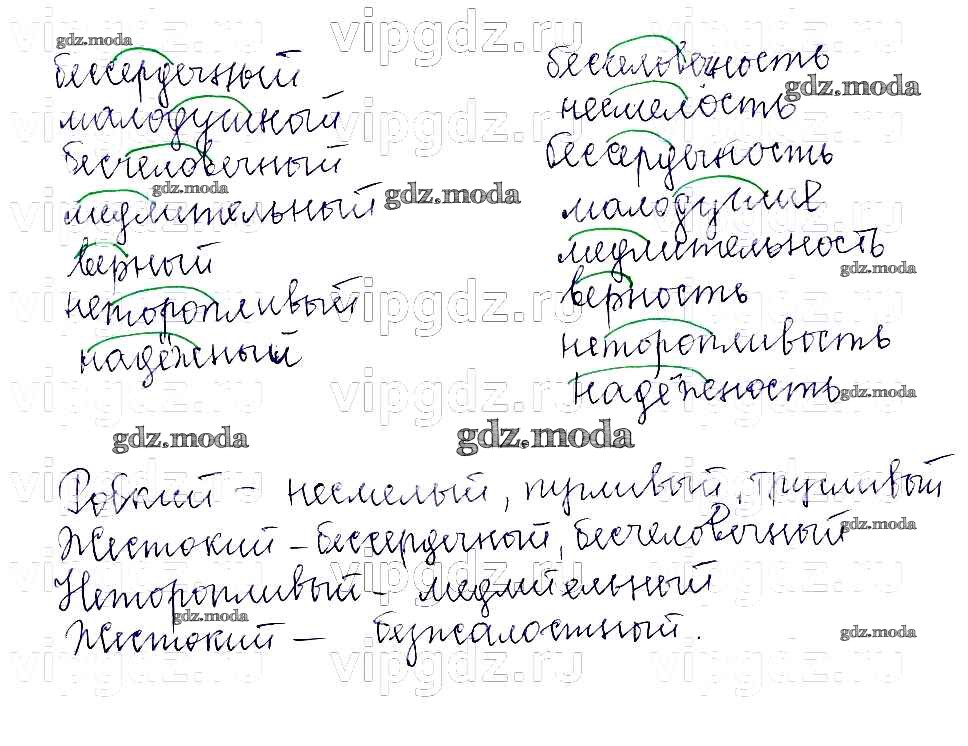 бессердечный
малодушный
бесчеловечный
медлительный
верный
неторопливый
надёжный
бесчеловечность
несмелость
бессердечность
малодушие
медлительность
верность
неторопливость
надёжность
Робкий – несмелый, пугливый, трусливый
Жестокий – бессердечный, бесчеловечный
Неторопливый – медлительный
Жестокий – безжалостный.
gdz.moda
vipgdz.ru